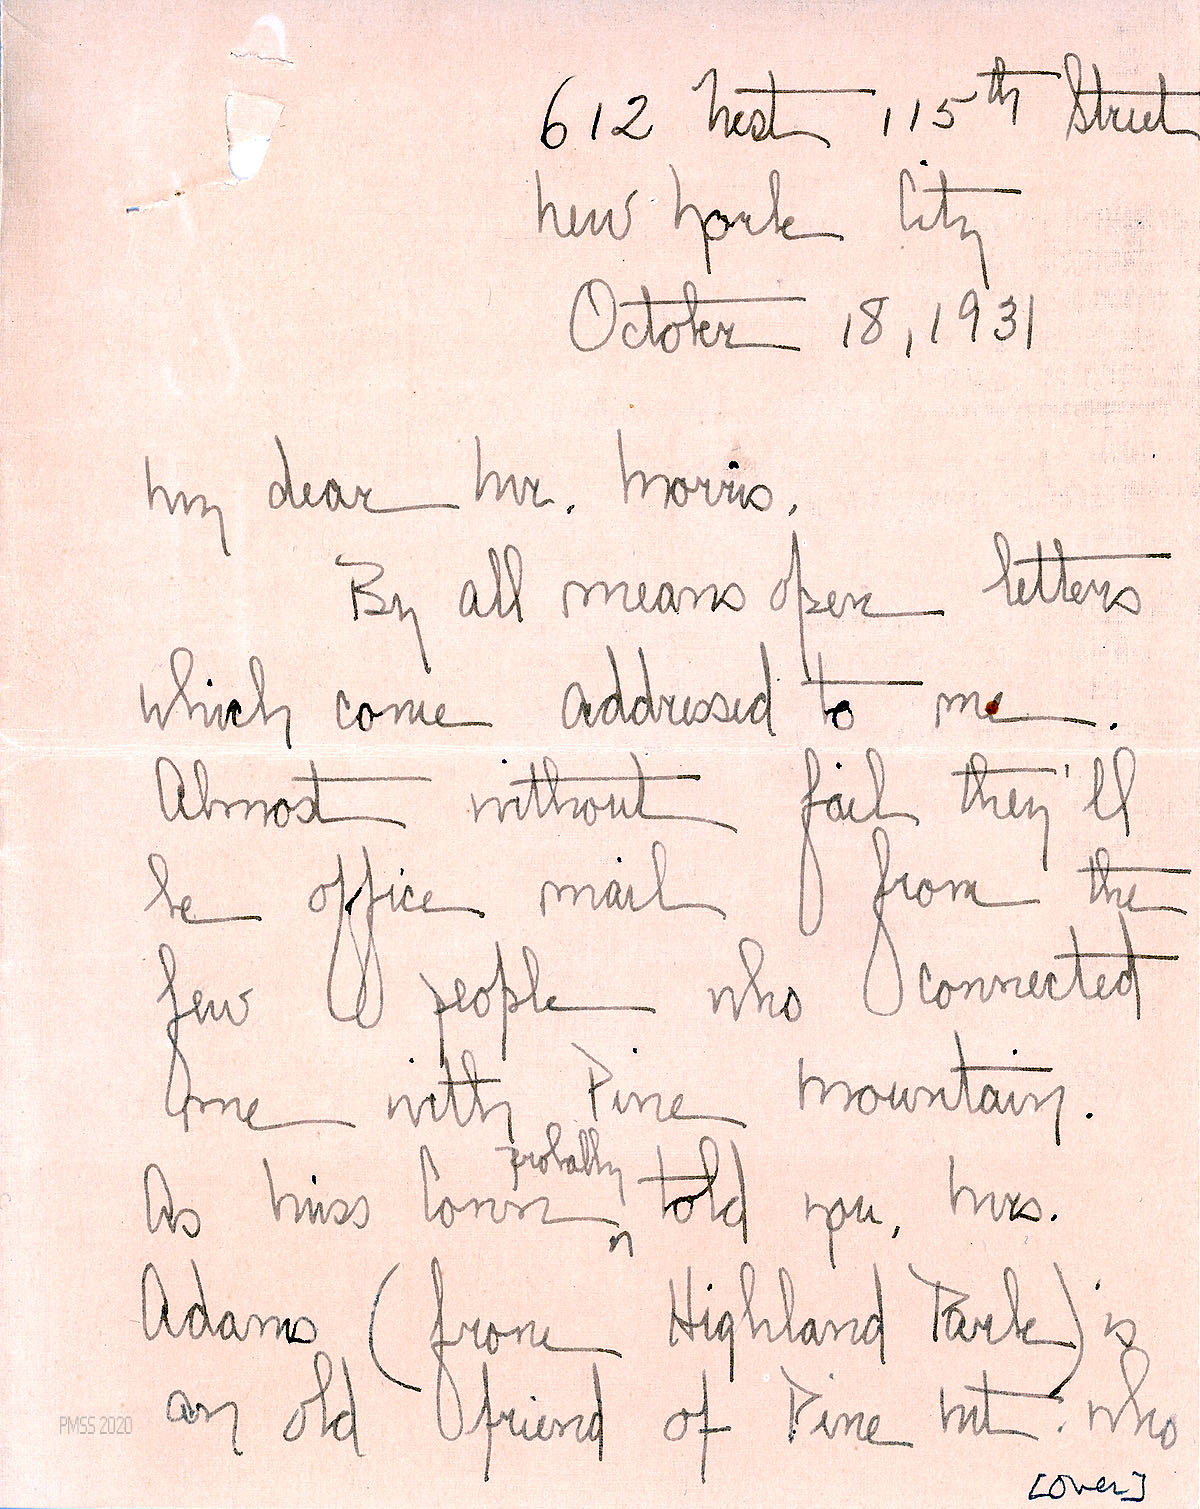 612 West 115th Street
New York City
October 18, 1931
My dear Mr. Morris,
By all means open letters
which come addressed to me.
Almost without fail they'll
be office mail from the
few people who connected
me with Pine Mountain.
probably
As Miss Conn told you, Mrs.
Adams (from Highland Park) is
an old friend of Pine Mt. who
PMSS 2020
[over]